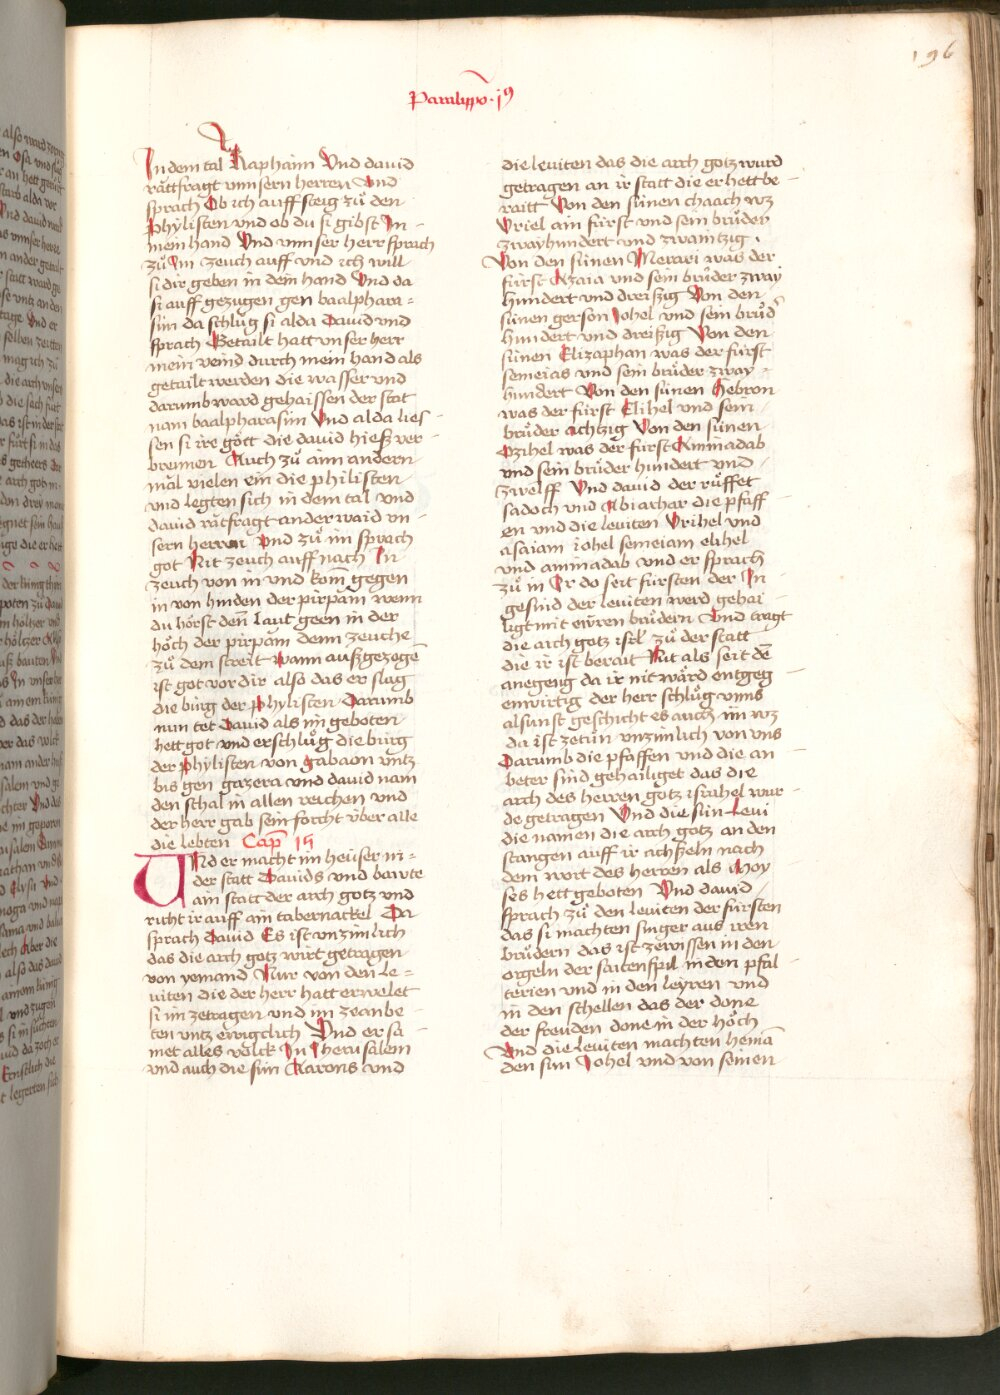 196
Paralippo. j9
In dem tal Raphaim Vnd dauid
rattfragt vnnsern herren Vnd
sprach Ob ich auff steig zů den
Phylisten vnd ob du si gibst In
mein hand Vnd vnnser herr sprach
zů Im zeuch auff vnd ich will
si dir geben in dein hand Vnd da
si auff gezugen gen baalphara=
sim da schlůg si alda Dauid vnd
sprach Getailt hatt vnser herr
mein veind durch mein hand als
getailt werden die wasser vnd
darumb ward gehaissen der stat
nam baalpharasim Vnd alda lies-
sen si ire gött die dauid hieß ver-
brennen Auch zů aim andern
mal vielen ein die philisten
vnd legten sich in dem tal vnd
dauid rätfragt anderwaid vn-
sern herren Vnd zů im sprach
got Nit zeuch auff nach In
zeuch von in vnd kom gegen
in von hinden der pirpäm wenn
du hörst den laut geen in der
höch der pirpäm denn zeuche
zů dem streit Wann außgezogē
ist got vor dir also das er slag
die bürg der Phylisten Darumb
nun tet Dauid als im geboten
hett got vnd erschlůg die bürg
der phylisten von gabaon vntz
bis gen gazera vnd dauid nam
den schal in allen reichen vnd
der herr gab sein forcht über alle
die lebten Cap 15
VNd er macht im heüser in=
der statt Dauids vnd bawte
ain statt der arch gotz vnd
richt ir auff ain tabernackel Da
sprach Dauid Es ist vnzimlich
das die arch gotz wirt getragen
von yemand Nur von den le=
uiten die der herr hatt erwelet
si im zetragen vnd im zeanbe-
ten vntz ewigclich Vnd er sa
met alles volck In Iherusalem
vnd auch die sün Aarons vnd
die leuiten das die arch gotz wurd
getragen an ir statt die er hett be-
raitt Von den sünen chaach wz
Vriel ain fürst vnd sein brůder
zwayhundert vnd zwaintzig.
Von den sünen Merari was der
fürst Azaia vnd sein brůder zway
hundert vnd dreißig Von den
sünen gerson Iohel vnd sein brůd
hundert vnd dreißig Von den
sünen Elizaphan was der fürst
semeias vnd sein brůder zway-
hundert Von den sünen Hebron
was der fürst Elihel vnd sein
brůder achtzig Von den sünen
Ozihel was der fürst Aminadab
vnd sein brůder hundert vnd
zwelff Vnd dauid der růffet
sadoch vnd Abiathar die pfaff
en vnd die leuiten Vrihel vnd
asaiam iohel semeiam elihel
vnd aminadab vnd er sprach
zů in Ir do seit fürsten der In
gesind der leuiten werd gehai
ligt mit ewren brůdern Vnd tragt
die arch gotz isrl zů der statt
die ir ist berait Nit als seit dē
anegeng da ir nit wārd entgeg
enwirtig der herr schlůg vnns
als sunst geschicht es auch im wz
da ist zetůn vnzimlich von vns
Darumb die pfaffen vnd die an
beter sind gehailiget das die
arch des herren gotz israhel wur
de getragen Vnd die sün Leui
die namen die arch gotz an den
stangen auff ir achßeln nach
dem wort des herren als Moy
ses hett geboten Vnd dauid
sprach zů den leuiten der fürsten
das si machten singer aus iren
brůdern das ist zewissen in den
orgeln der saitenspil in den psal
terien vnd in den leyren vnd
in den schellen das der done
der freuden done in der höch
Vnd die leuiten machten hemā
den sun Iohel vnd von seinen